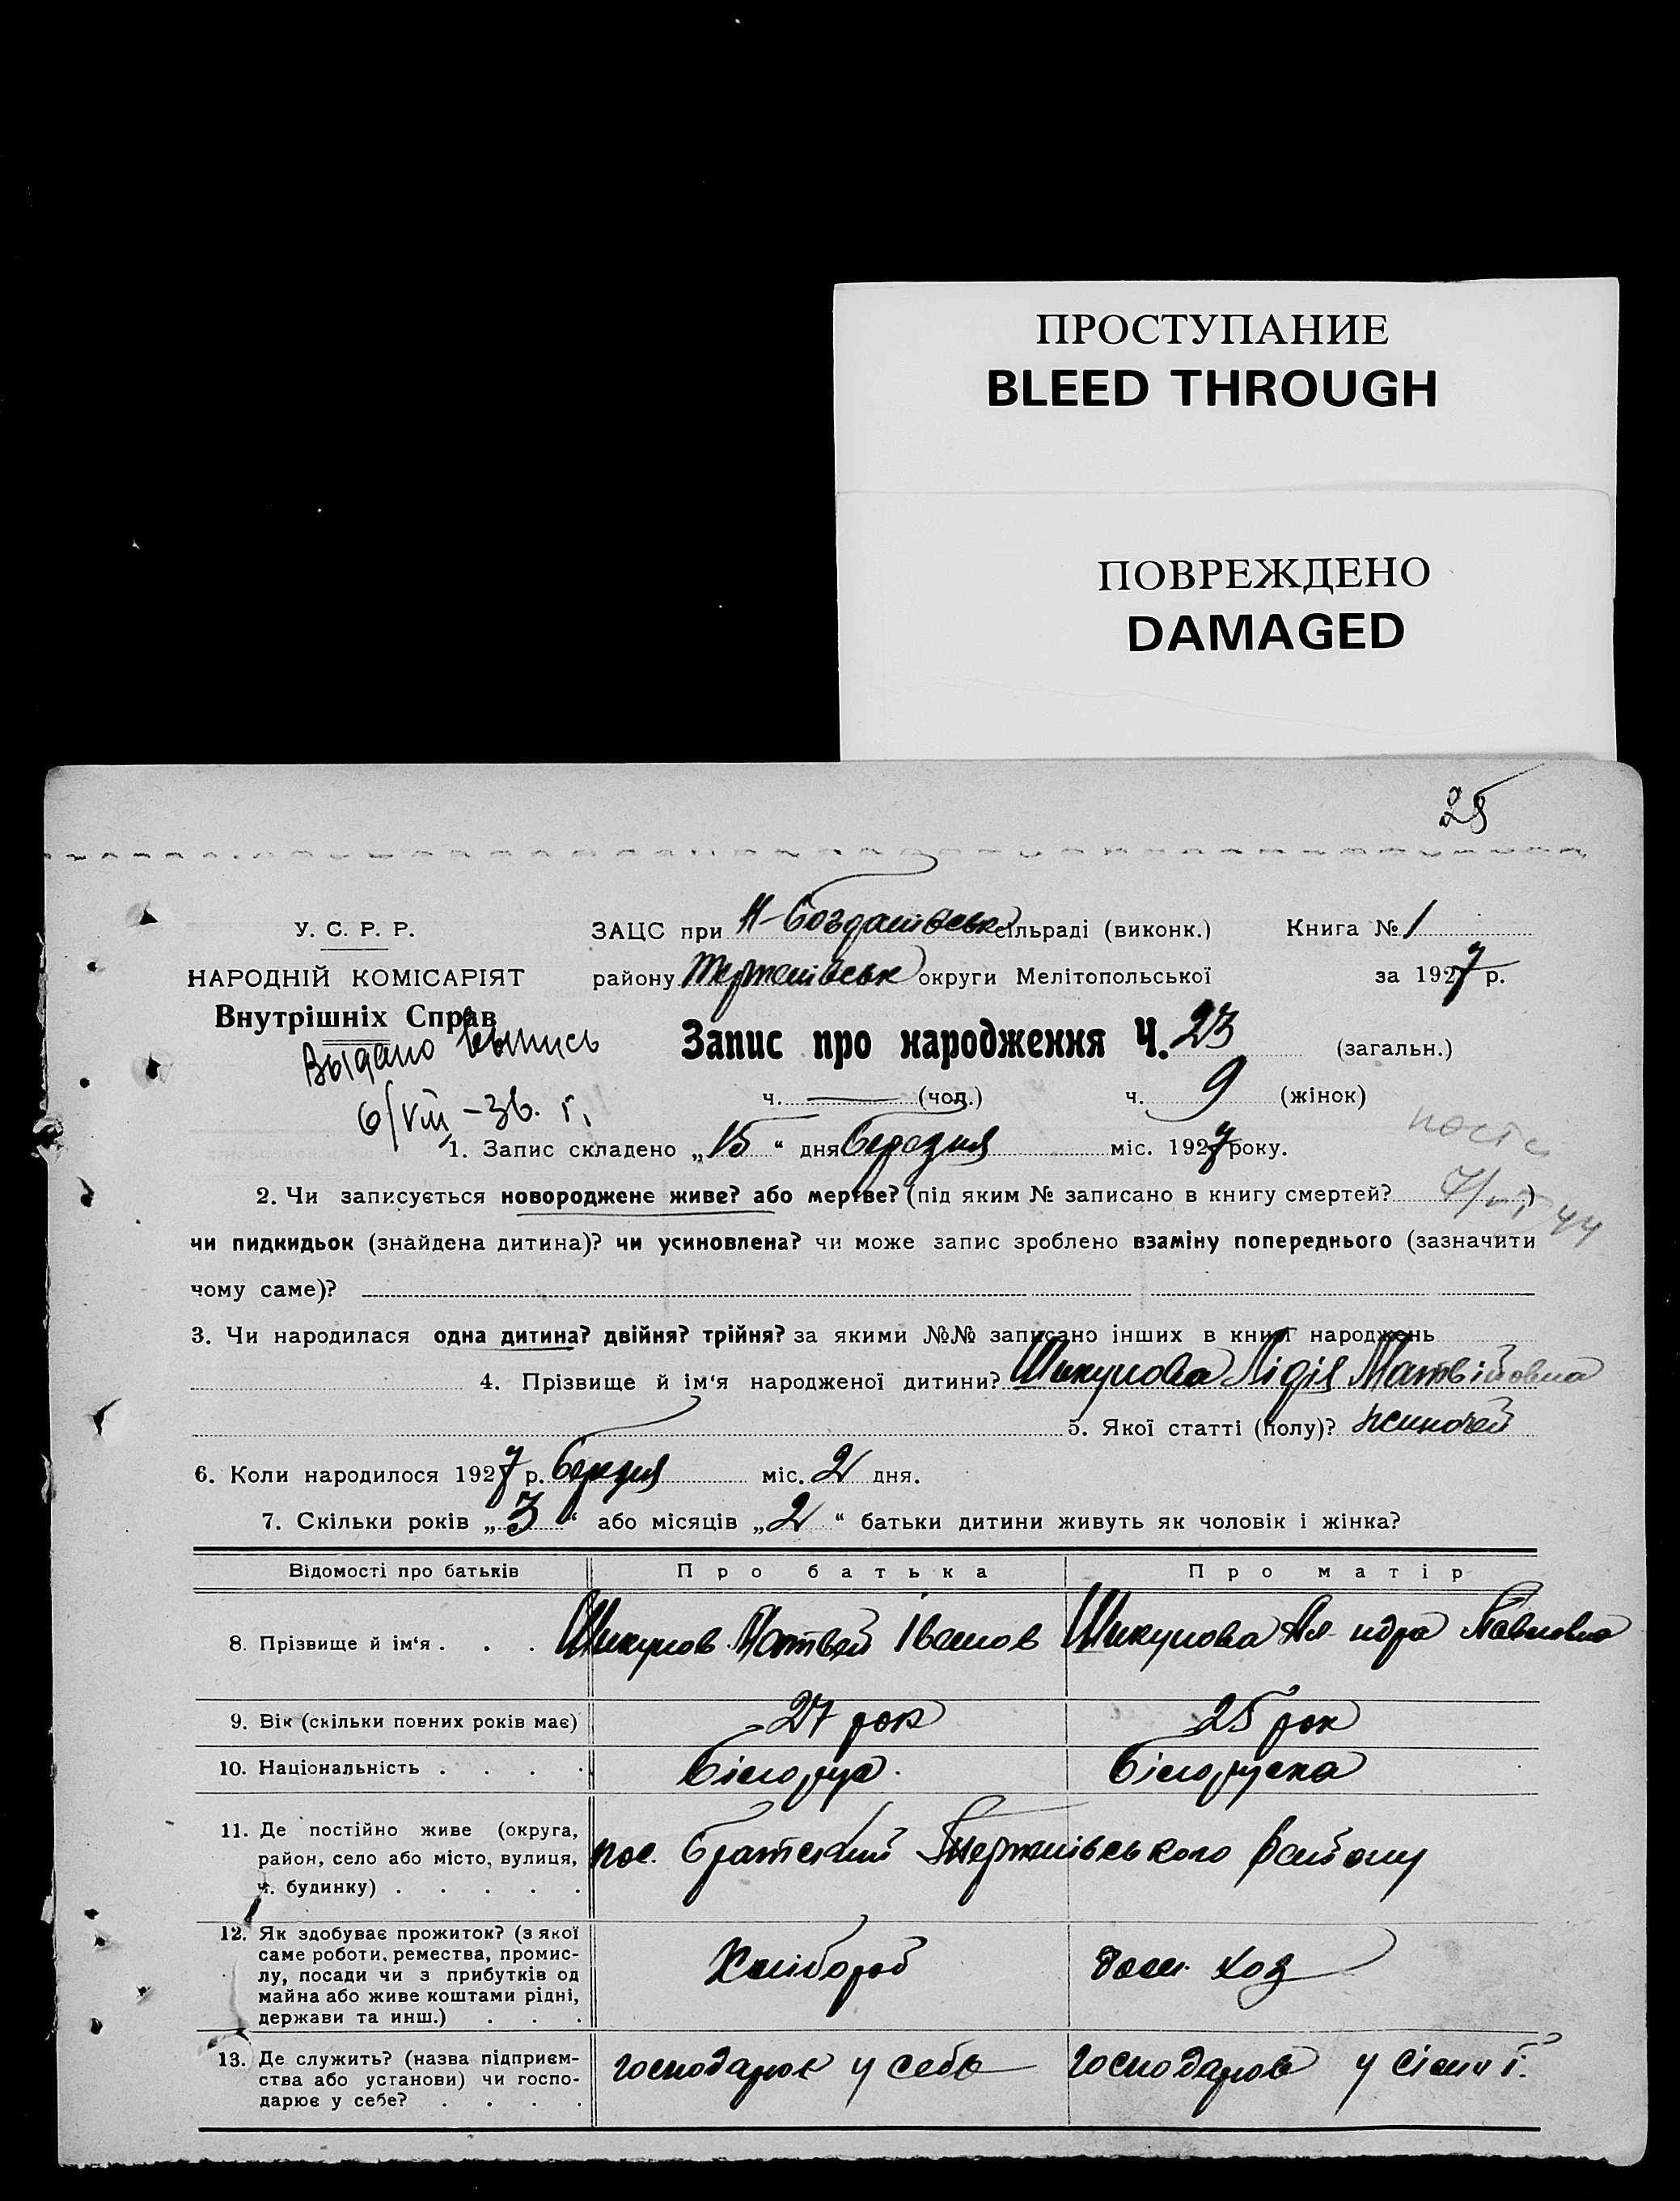 ПРОСТУПАНИЕ
BLEED THROUGH
ПОВРЕЖДЕНО
DAMAGED
25
У. С. Р. Р.
НАРОДНІЙ КОМІСАРІЯТ
Внутрішніх Справ
Выдано выпись
6/VIII - 36. г.
ЗАЦС при Н-Богданівськ сільраді (виконк.) Книга № 1
району округи Мелітопольської за 1927 р.
Запис про народження Ч. 23 (загальн.)
ч. — (чол.) ч. 9 (жінок)
1. Запис складено „15“ дня березня міс. 1927 року.
2. Чи записується новороджене живе? або мертве? (під яким № записано в книгу смертей? )
чи пидкидьок (знайдена дитина)? чи усиновлена? чи може запис зроблено взаміну попереднього (зазначити
чому саме)?
3. Чи народилася одна дитина? двійня? трійня? за якими №№ записано інших в книзі народжень
4. Прізвище й ім‘я народженої дитини? Шикунова Лідія Матвійовна
5. Якої статті (полу)? жиночей
6. Коли народилося 1927 р. березня міс. 2 дня.
7. Скільки років „3“ або місяців „2“ батьки дитини живуть як чоловік і жінка?
Відомості про батьків Про батька Про матір
8. Прізвище й ім‘я . . . Шикунов Матвей Іванов Шикунова Ал-ндра Павловна
9. Вік (скільки повних років має) 27 рок 25 рок
10. Національність . . . . білорус. білоруска
11. Де постійно живе (округа,
район, село або місто, вулиця,
ч. будинку) . . . . .
пос. Братский району
12. Як здобуває прожиток? (з якої
саме роботи, ремества, промис-
лу, посади чи з прибутків од
майна або живе коштами рідні,
держави та инш.) . . .
Хлібороб дом. хоз
13. Де служить? (назва підприєм-
ства або установи) чи госпо-
дарює у себе? . . . .
господарює у себе господарює у сімї.